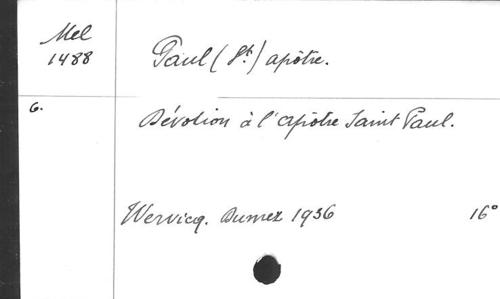 Mel
1488
Paul (St.) apôtre.
6.
Dévotion à l'apôtre Saint Paul.
Wervicq. Dumez 1936
16°